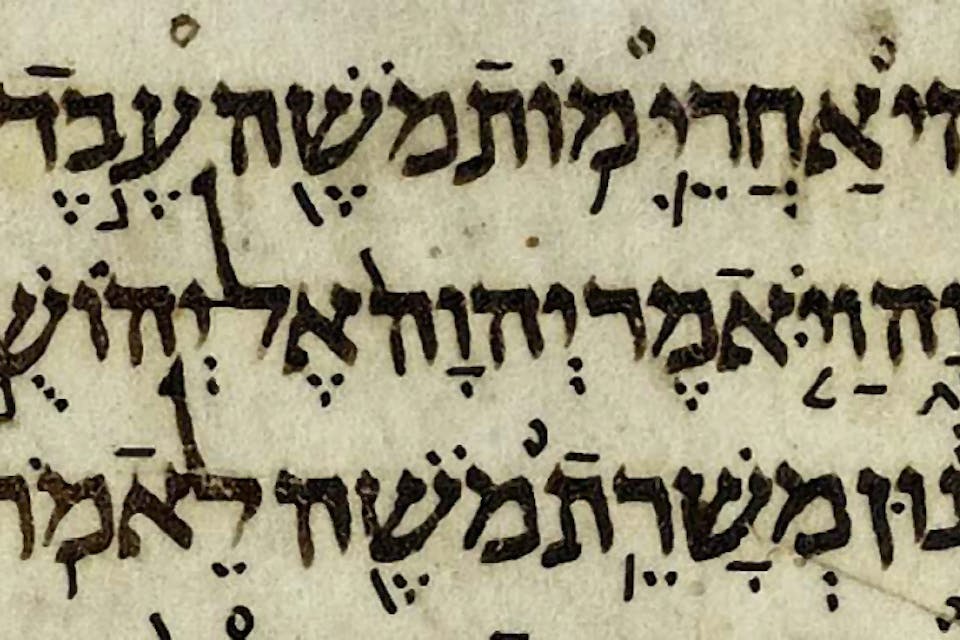 הִי אַחֲרֵ֛י מ֥וֹת מֹשֶׁ֖ה עֶ֣בֶד
וָ֑ה וַיֹּ֤אמֶר יְהוָה֙ אֶל־יְהוֹשֻׁ
נ֔וּן מְשָׁרֵ֥ת מֹשֶׁ֖ה לֵאמֹֽר